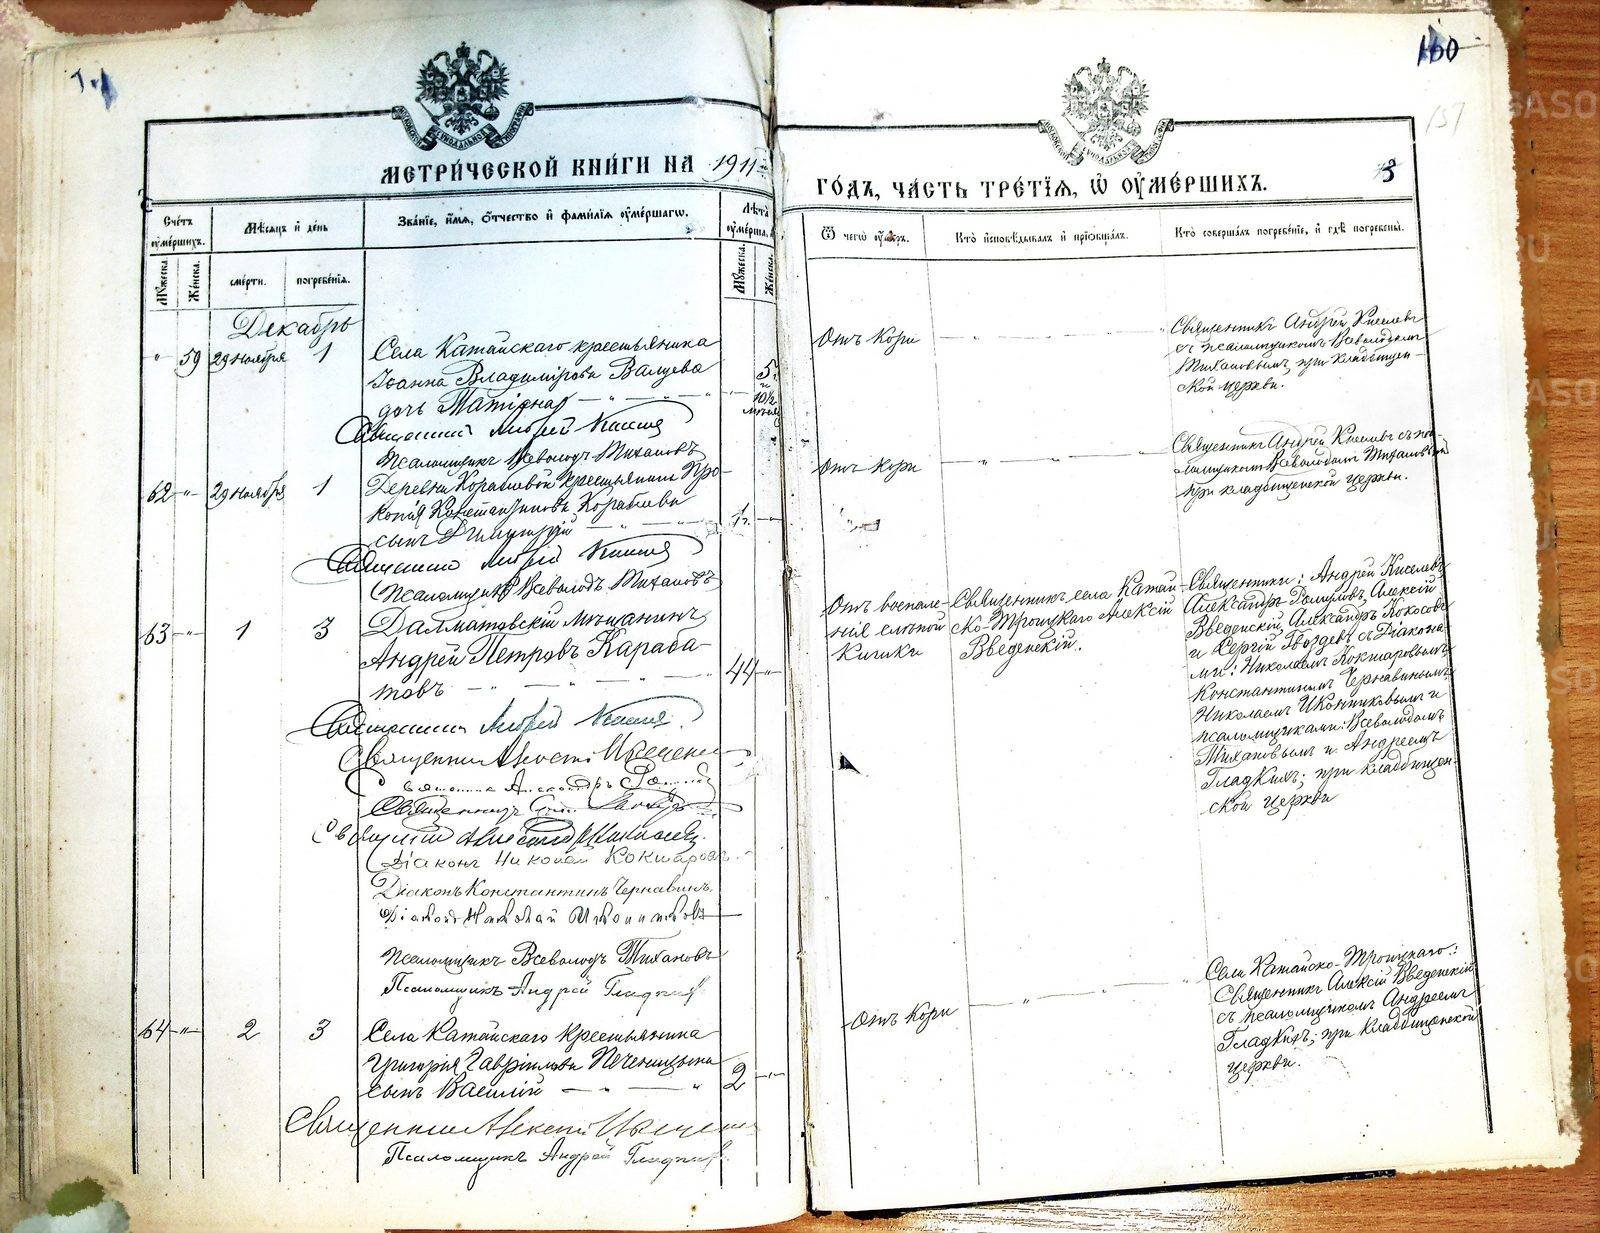 160
157
МЕТРИЧЕСКОЙ КНИГИ НА 1911
ГОДЪ, ЧАСТЬ ТРЕТІЯ, Ѽ ОУМЕРШИХЪ.
3
Счетъ оумершихъ.
Мѣсяцъ и день
Званіе, имя, отчество и фамилія оумершагѡ.
Лѣта оумерша
Ѿ чегѡ оумеръ.
Кто исповѣдывалъ и пріобщалъ.
Кто совершалъ погребеніе, и гдѣ погребены.
Мужеска.
Женска.
смерти.
погребенія.
Мужеска.
Женска.
Декабрь
" 59 29 ноября 1
Села Катайскаго крестьянина
Іоанна Владимірова Валцева
дочь Татіяна
5 г. и 10½
Отъ кори
Священникъ Андрей Киселевъ
съ псаломщикомъ Всеволодомъ
Тихановымъ, при кладбищен-
ской церкви.
Священникъ Андрей Киселевъ
Псаломщикъ Всеволодъ Тихановъ
62 " 29 ноября 1
Деревни Корателевой крестьянина Про-
копія Константинова
сынъ Димитрій
1 г.
Отъ кори
Священникъ Андрей Киселевъ съ пса-
ломщикомъ Всеволодомъ Тихановымъ
при кладбищенской церкви.
Священникъ Андрей Киселевъ
Псаломщикъ Всеволодъ Тихановъ
63 " 1 3
Далматовскій мѣщанинъ
Андрей Петровъ Караба-
товъ
44
Отъ воспале-
нія слѣпой
кишки
Священникъ села Катай-
ско-Троицкаго Алексій
Введенскій.
Священники: Андрей Киселевъ
Александръ Алексій
Введенскій, Александръ Кокосовъ
и Сергій Гвоздевъ съ діакона-
ми: Николаемъ Кокшаровымъ
Константиномъ Чернавинымъ
Николаемъ Иконниковымъ и
псаломщиками: Всеволодомъ
Тихановымъ и Андреемъ
Гладкихъ; при кладбищен-
ской церкви
Священникъ Андрей Киселевъ
Священникъ Алексій Введенскій
Священникъ Александръ
Священникъ
Священникъ Александръ
Діаконъ Николай Кокшаровъ
Діаконъ Константинъ Чернавинъ
Діаконъ Николай Иконниковъ
Псаломщикъ Всеволодъ Тихановъ
Псаломщикъ Андрей Гладкихъ
64 " 2 3
Села Катайскаго крестьянина
Григорія Гавріилова Печеницына
сынъ Василій
2
Отъ кори
Села Катайско-Троицкаго:
Священникъ Алексій Введенскій
съ псаломщикомъ Андреемъ
Гладкихъ, при кладбищенской
церкви.
Священникъ Алексій Введенскій
Псаломщикъ Андрей Гладкихъ